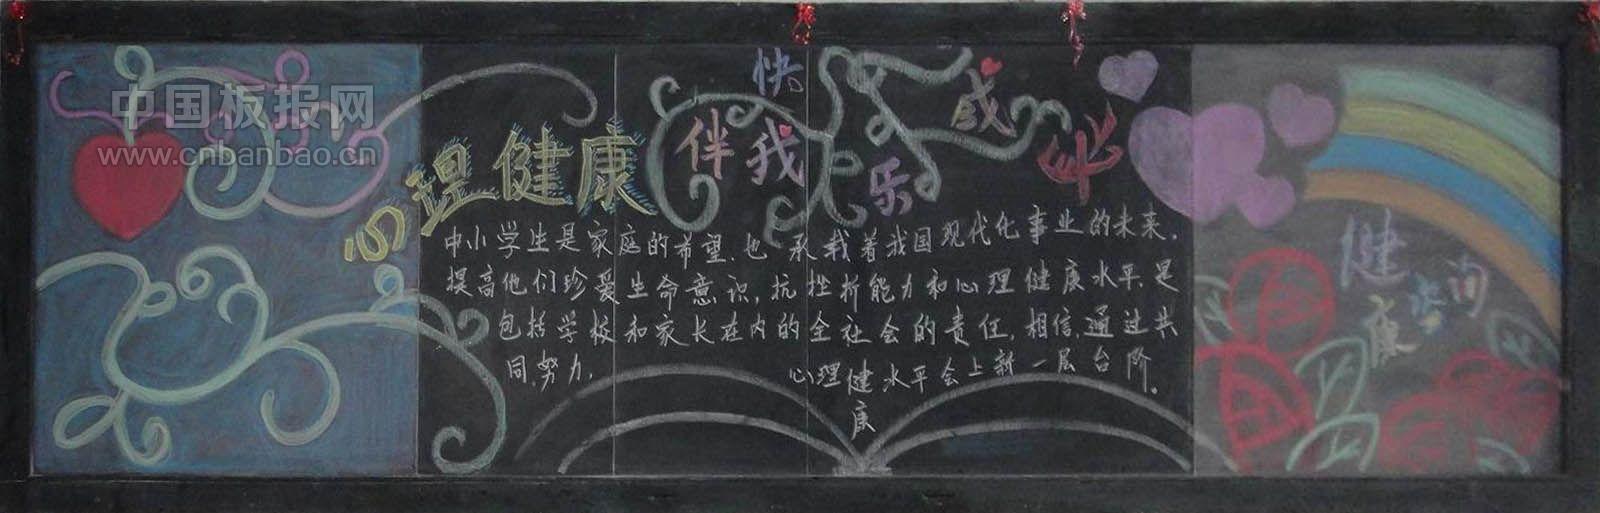 中国板报网
www.cnbanbao.cn
心理健康
伴我快乐成长
中小学生是家庭的希望,也承载着我国现代化事业的未来.
提高他们珍爱生命意识,抗挫折能力和心理健康水平,是
包括学校和家长在内的全社会的责任.相信,通过共
同努力, 心理健康水平会上新一层台阶.
健康